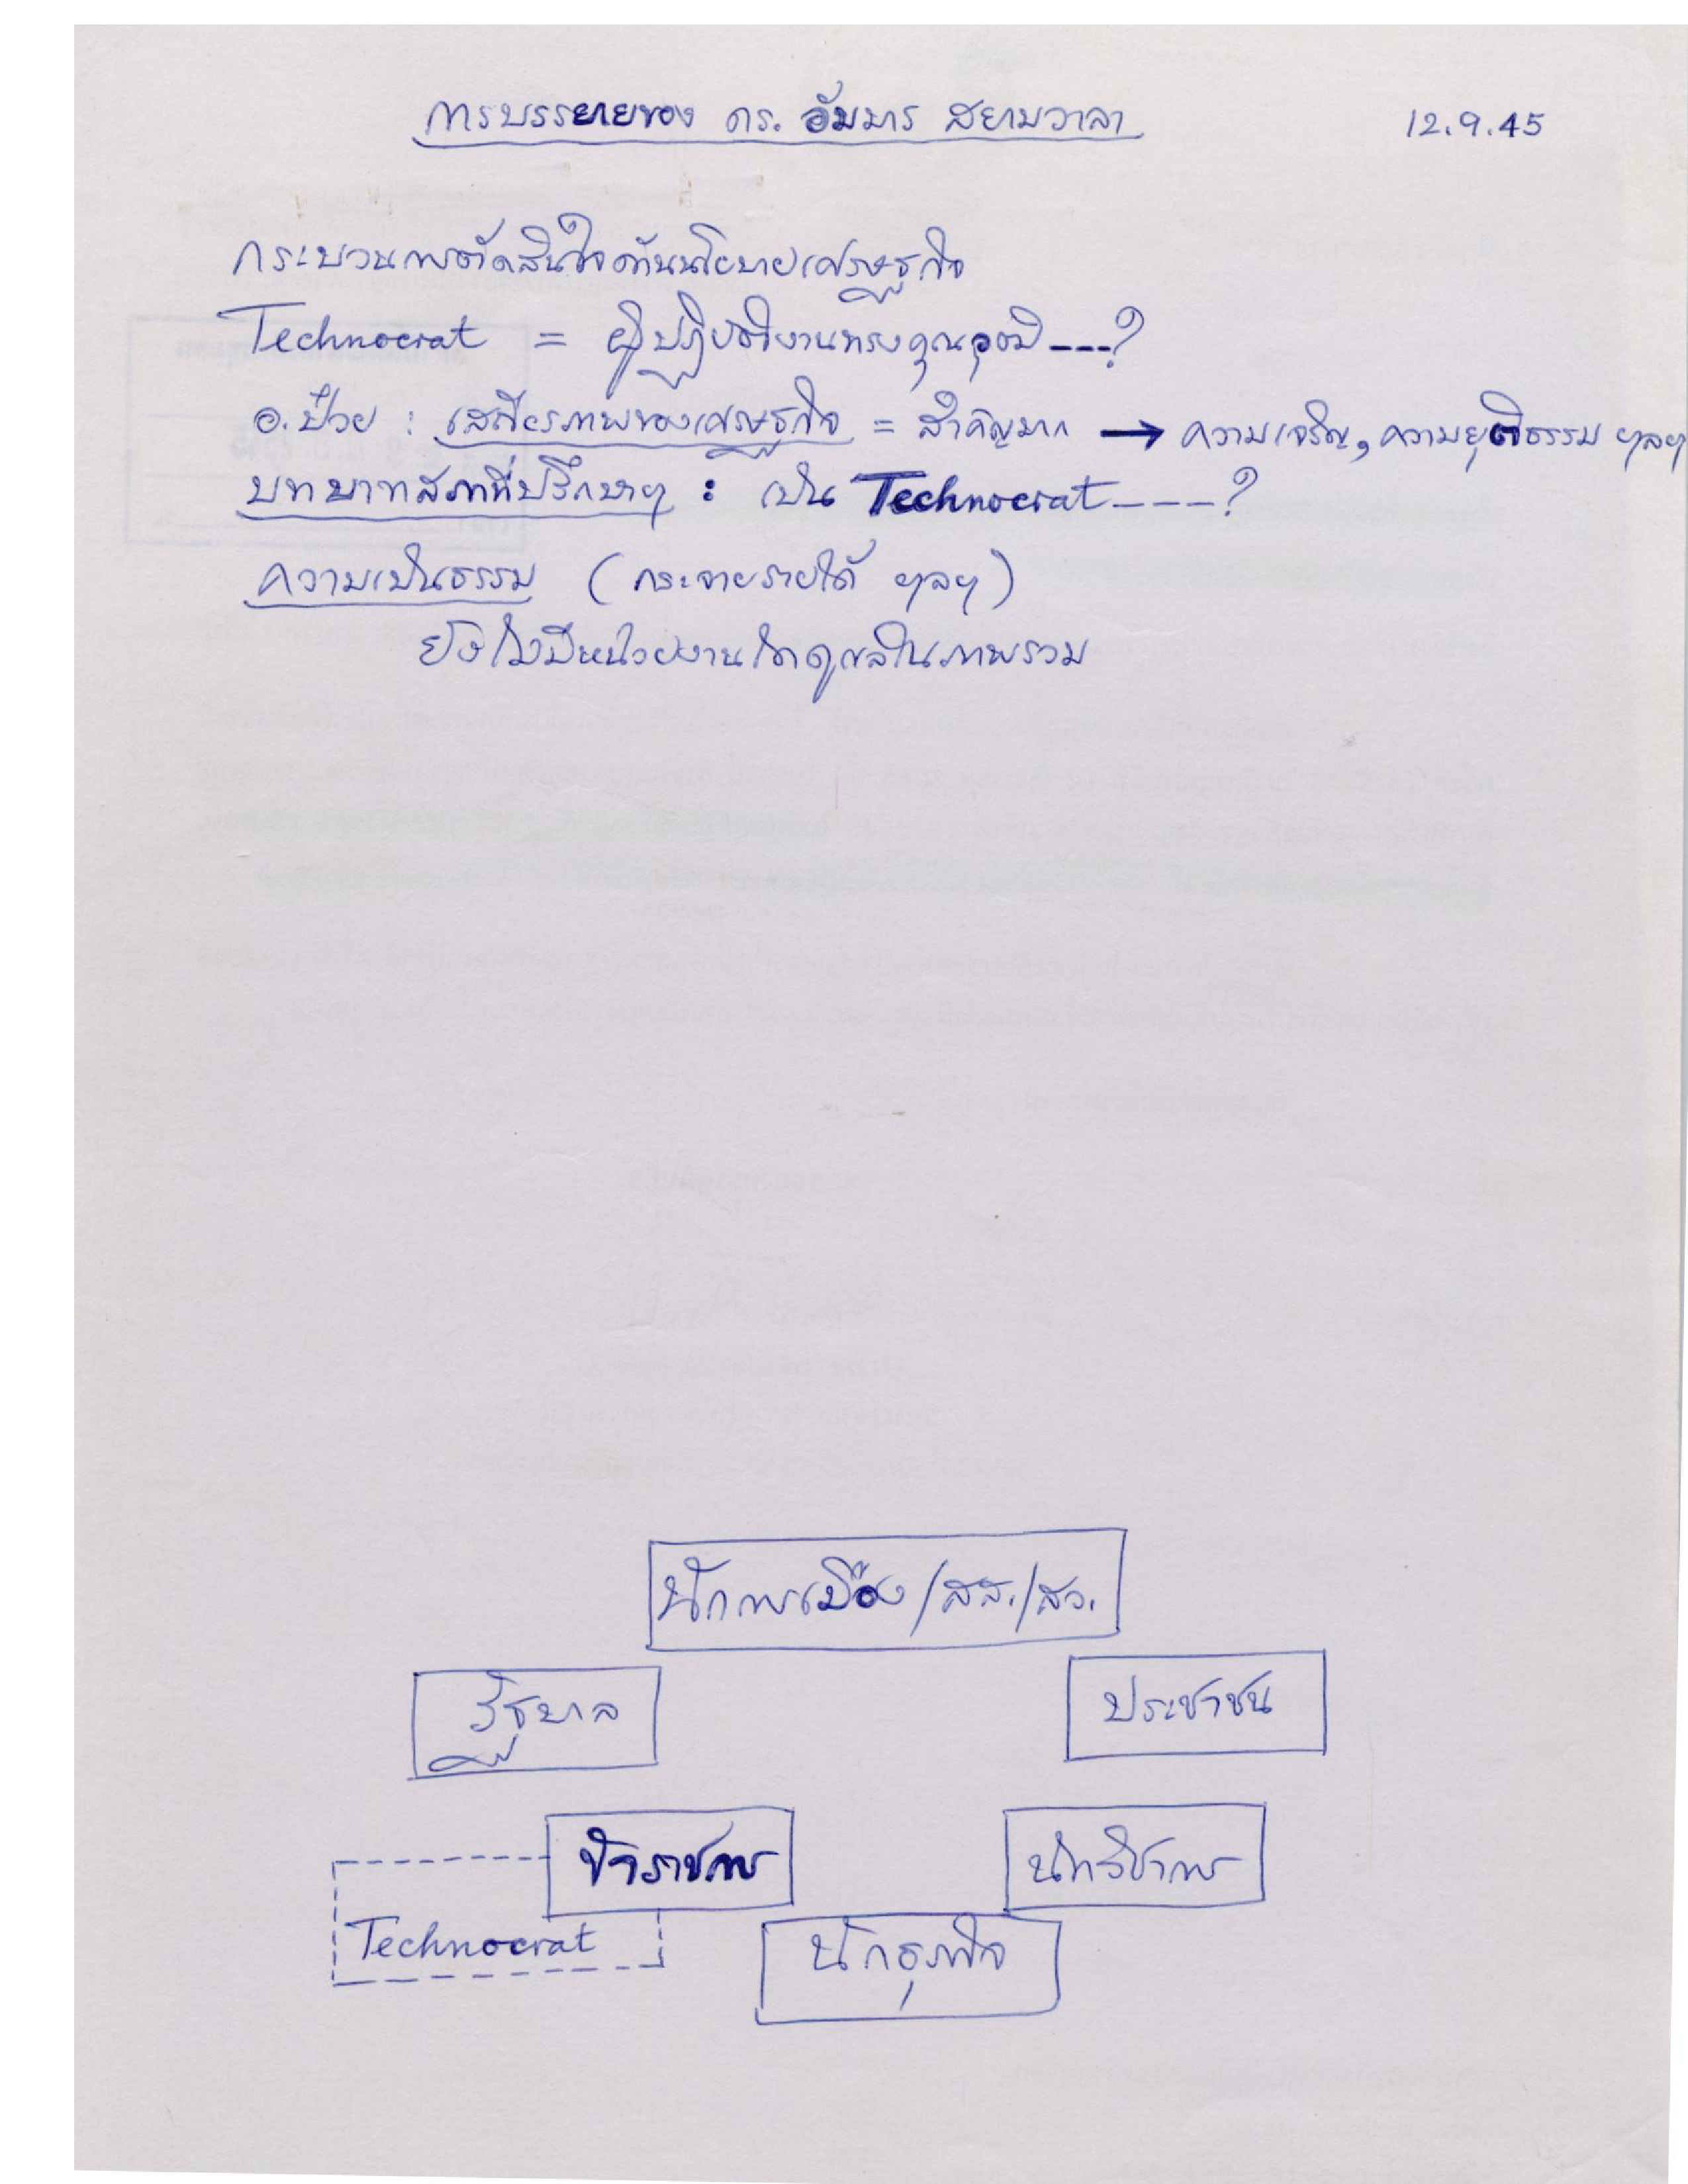 การบรรยายของ ดร. อัมมาร สยามวาลา
12.9.45
กระบวนการตัดสินใจด้านนโยบายเศรษฐกิจ
Technocrat = ผู้ปฏิบัติงานทรงคุณวุฒิ ---?
อ.ป๋วย : เสถียรภาพของเศรษฐกิจ = สำคัญมาก → ความเจริญ, ความยุติธรรม ฯลฯ
บทบาทสภาที่ปรึกษาฯ : เป็น Technocrat ----?
ความเป็นธรรม (กระจายรายได้ ฯลฯ)
ยังไม่มีหน่วยงานใดดูแลในภาพรวม
นักการเมือง/สส./สว.
รัฐบาล
ประชาชน
ข้าราชการ
นักวิชาการ
Technocrat
นักธุรกิจ